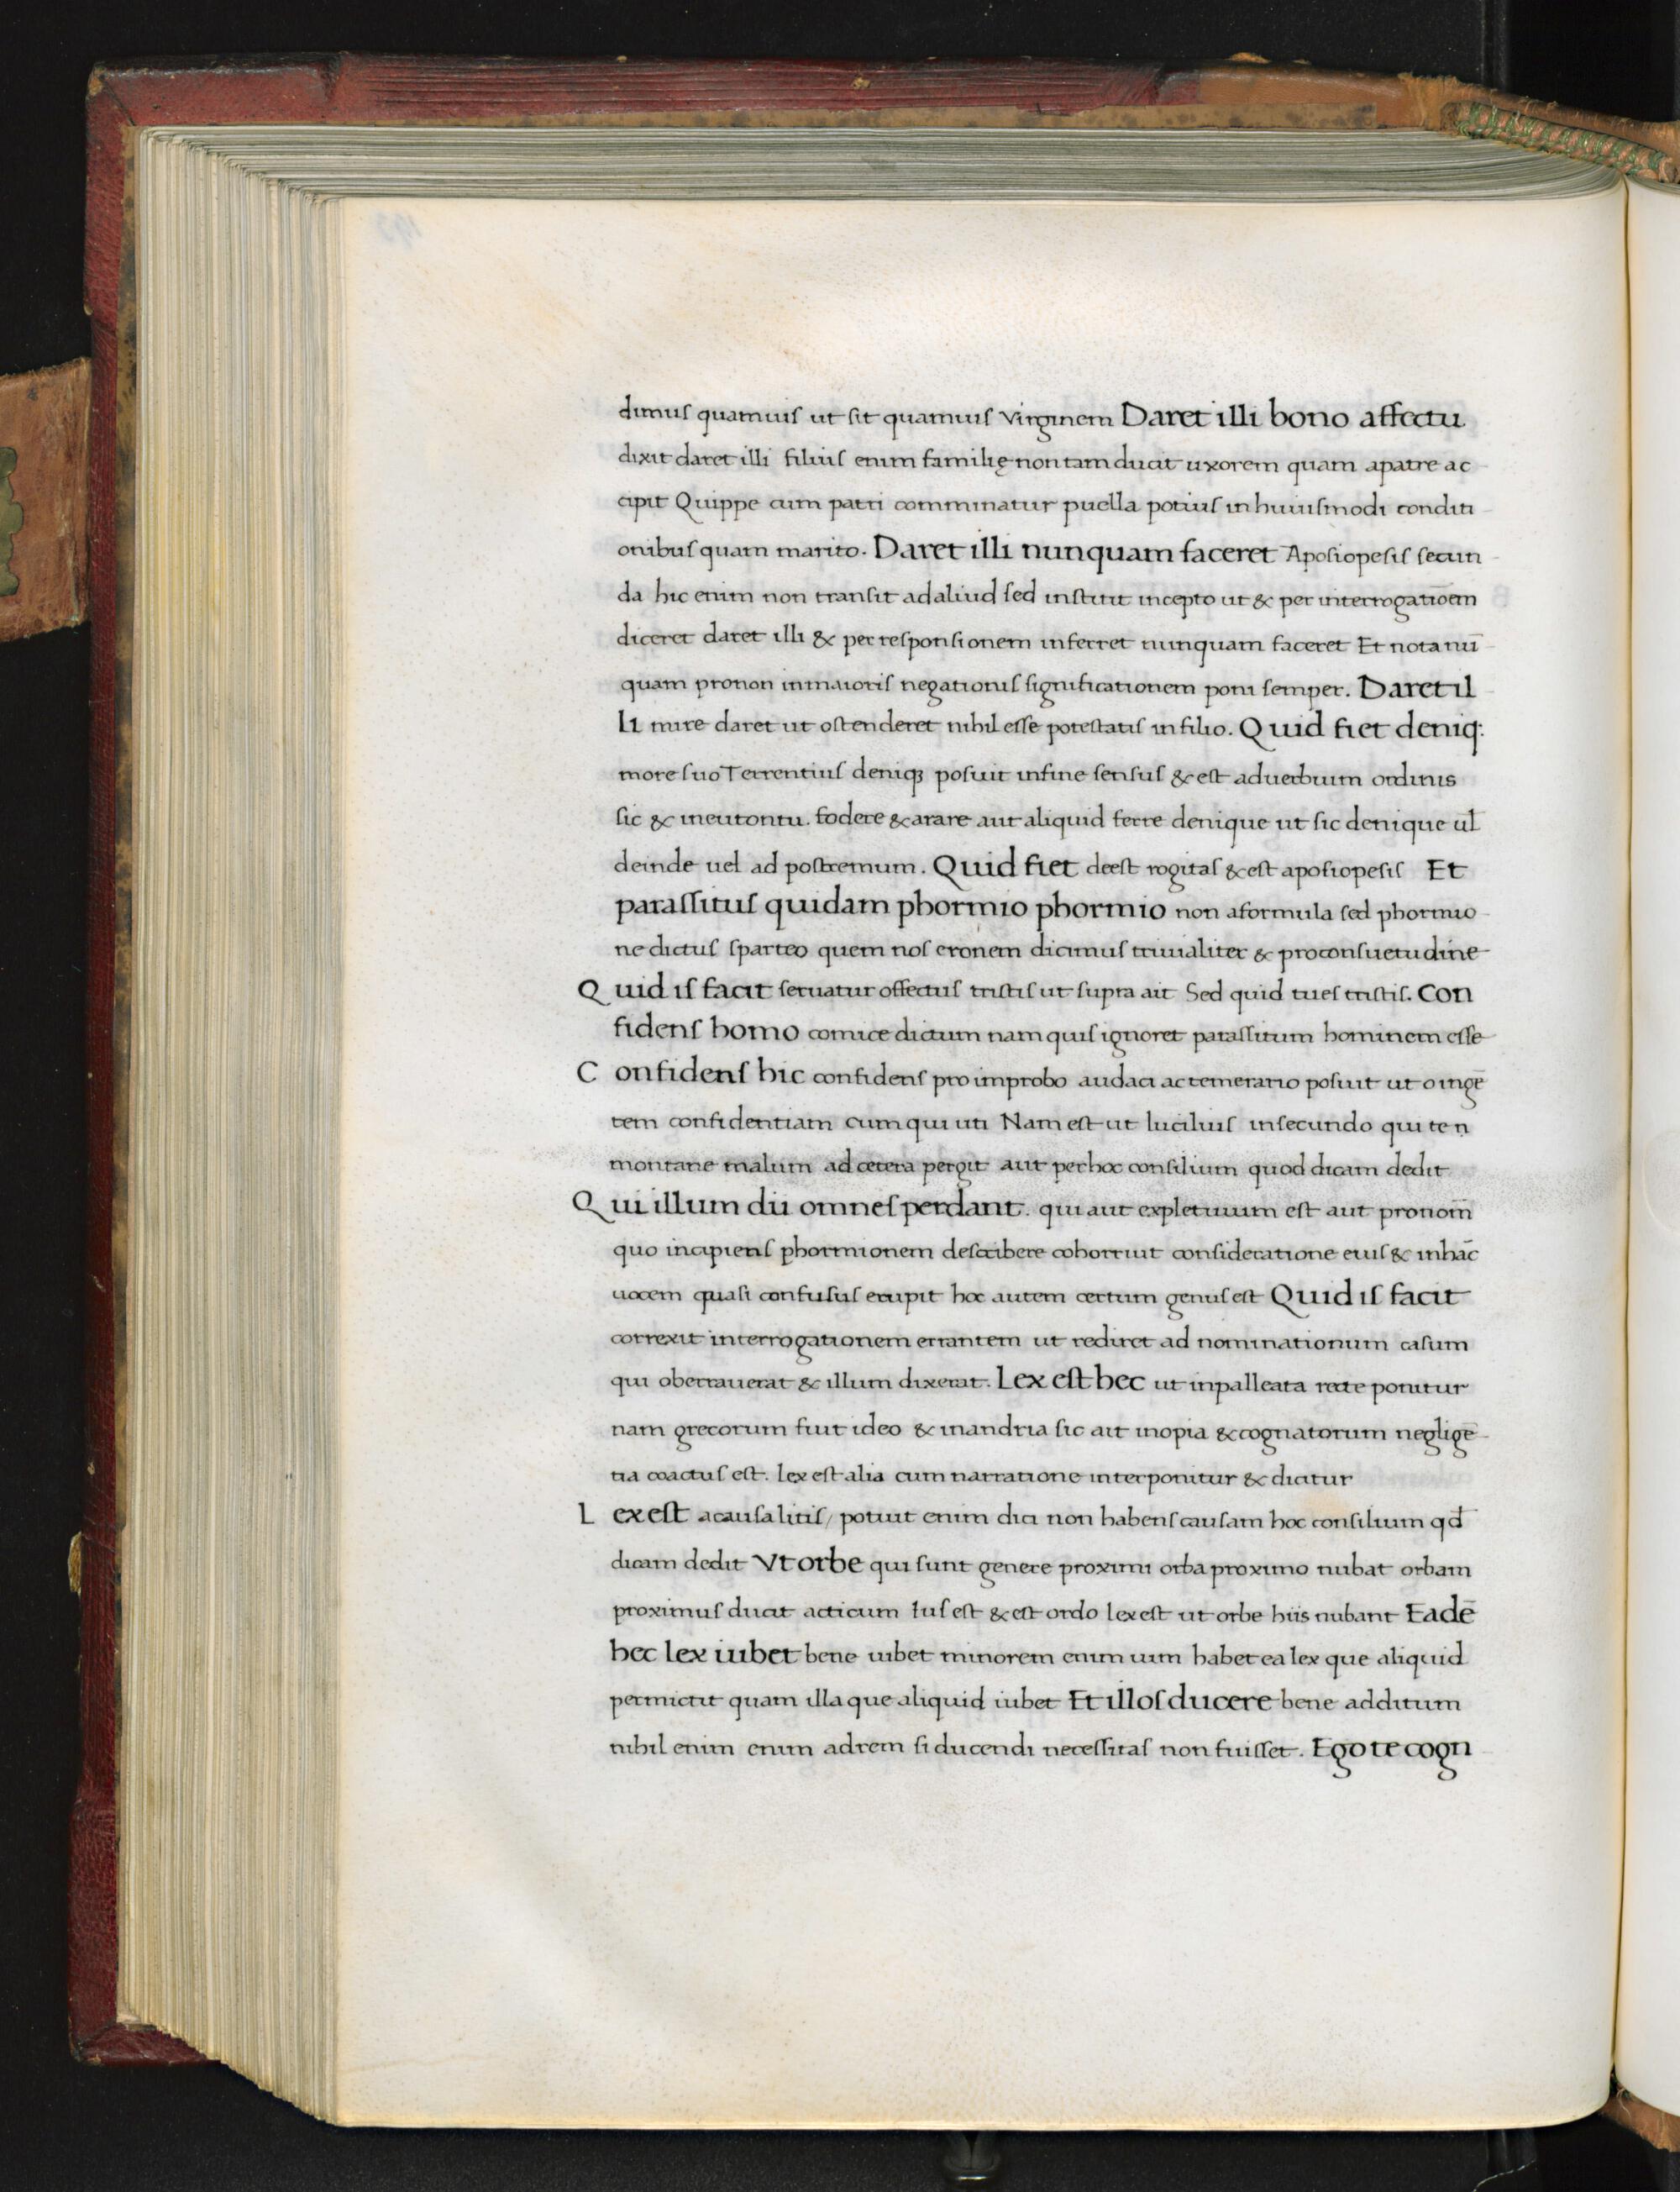 dimus quamuis ut sit quamuis Virginem Daret illi bono affectu
dixit daret illi filius enim familię non tam ducit uxorem quam apatre ac
cipit Quippe cum patri comminatur puella potius in huiusmodi conditi
onibus quam marito. Daret illi nunquam faceret Aposiopesis secun
da hic enim non transit ad aliud sed institit incepto ut & per interrogatiōem
diceret daret illi & per responsionem inferret nunquam faceret Et nota nū
quam pronon in maioris negationis significationem poni semper. Daret il
li mire daret ut ostenderet nihil esse potestatis in filio. Quid fiet deniq:
more suo Terrentius deniqȝ posuit infine sensus & est aduerbium ordinis
sic & ineutontu. fodere & arare aut aliquid ferre denique ut sic denique ul̄
deinde uel ad postremum. Quid fiet deest rogitas & est aposiopesis Et
parassitus quidam phormio phormio non aformula sed phormio
ne dictus sparteo quem nos eronem dicimus triuialiter & proconsuetudine
Quid is facit seruatur offectus tristis ut supra ait Sed quid tues tristis. Con
fidens homo comice dictum nam quis ignoret parassitum hominem esse
Confidens hic confidens pro improbo audaci ac temerario posuit ut o ingē
tem confidentiam cum qui uti Nam est ut lucilius in secundo qui te n
montane malum ad cetera pergit aut per hoc consilium quod dicam dedit
Qui illum dii omnes perdant. qui aut expletiuum est aut pronom̄
quo incipiens phormionem describere cohorruit consideratione eius & inhāc
uocem quasi confusus erupit hoc autem certum genus est Quid is facit
correxit interrogationem errantem ut rediret ad nominationum casum
qui oberrauerat & illum dixerat. Lex est hec ut inpalleata recte ponitur
nam grecorum fiut ideo & inandria sic ait inopia & cognatorum negligē
tia coactus est. lex est alia cum narratione interponitur & dicitur
Lex est acausa litis/ potuit enim dici non habens causam hoc consilium qđ
dicam dedit Vt orbe qui sunt genere proximi orba proximo nubat orbam
proximus ducit acticum Ius est & est ordo lex est ut orbe hiis nubant Eadē
hec lex iubet bene iubet minorem enim uim habet ea lex que aliquid
permictit quam illa que aliquid iubet Et illos ducere bene additum
nihil enim enim adrem si ducendi necessitas non fuisset. Ego te cogn